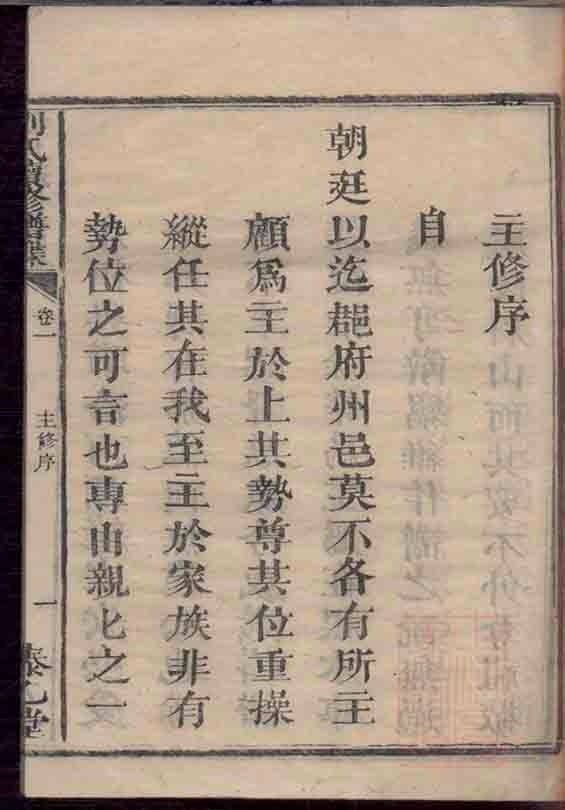 主修序
自
朝廷以迄郡府州邑莫不各有所主
顧爲主於上其勢尊其位重操
縱任其在我至主於家族非有
勢位之可言也專由親匕之一
氏續修譜
卷一
主修序
一
堂